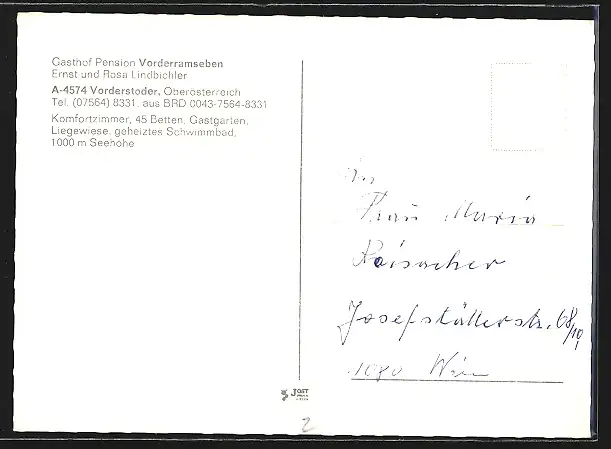 Gasthof Pension Vorderramseben
Ernst und Rosa Lindbichler
A-4574 Vorderstoder, Oberösterreich
Tel. (07564) 8331, aus BRD 0043-7564-8331
Komfortzimmer, 45 Betten, Gastgarten,
Liegewiese, geheiztes Schwimmbad,
1000 m Seehöhe
An
Frau Maria
Raisacher
Josefstädterstr. 68/10,
1080 Wien
JOST
2